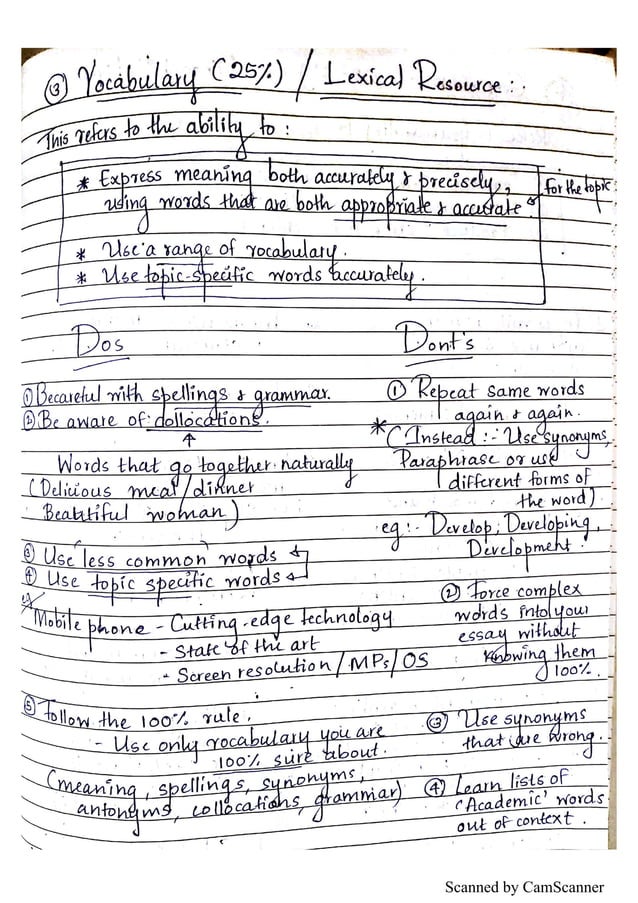 ③ Vocabulary (25%) / Lexical Resource :
This refers to the ability to :
* Express meaning both accurately & precisely, for the topic
using words that are both appropriate & accurate
* Use a range of vocabulary.
* Use topic-specific words accurately.
Dos
① Becareful with spellings & grammar.
② Be aware of collocations.
↑
Words that go together naturally
(Delicious meal / dinner
Beautiful woman)
③ Use less common words
④ Use topic specific words
eg Mobile phone - Cutting-edge technology
- State of the art
- Screen resolution / MPs / OS
⑤ Follow the 100% rule.
- Use only vocabulary you are
100% sure about.
(meaning, spellings, synonyms,
antonyms, collocations, grammar)
Dont's
① Repeat same words
again & again.
* (Instead :- Use synonyms,
Paraphrase or use
different forms of
the word)
eg:- Develop, Developing,
Development.
② Force complex
words into your
essay without
knowing them
100%.
③ Use synonyms
that are wrong.
④ Learn lists of
'Academic' words
out of context.
Scanned by CamScanner